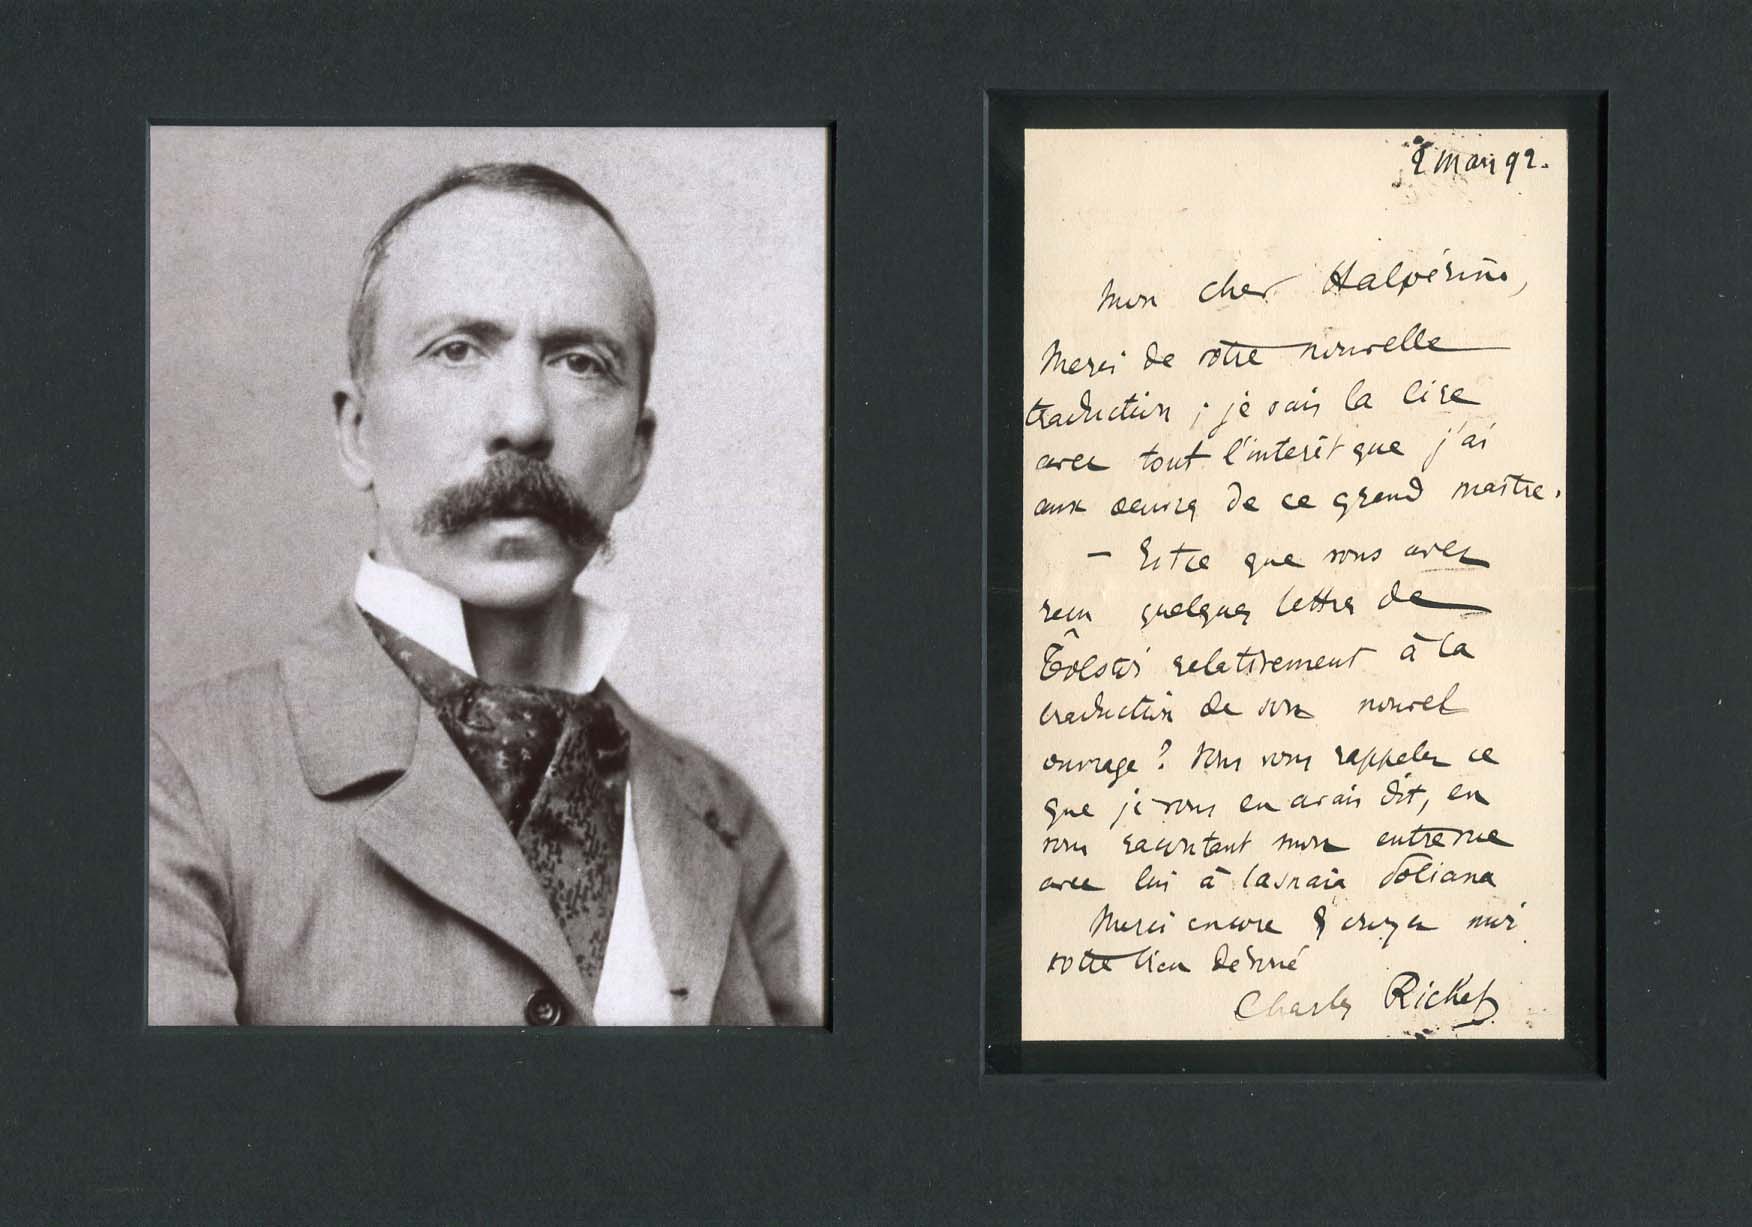 2 Mars 92.
Mon cher Halpérine,
Merci de votre nouvelle
traduction ; je vais la lire
avec tout l'interêt que j'ai
aux oeuvres de ce grand maître.
– Est ce que vous avez
recu quelques lettres de
Tolstoi relativement à la
traduction de son nouvel
ouvrage ? Vous vous rappelez ce
que je vous en avais dit, en
vous racontant mon entrevue
avec lui à Iasnaia Poliana
Merci encore & croyez moi
votre bien dévoué
Charles Richet